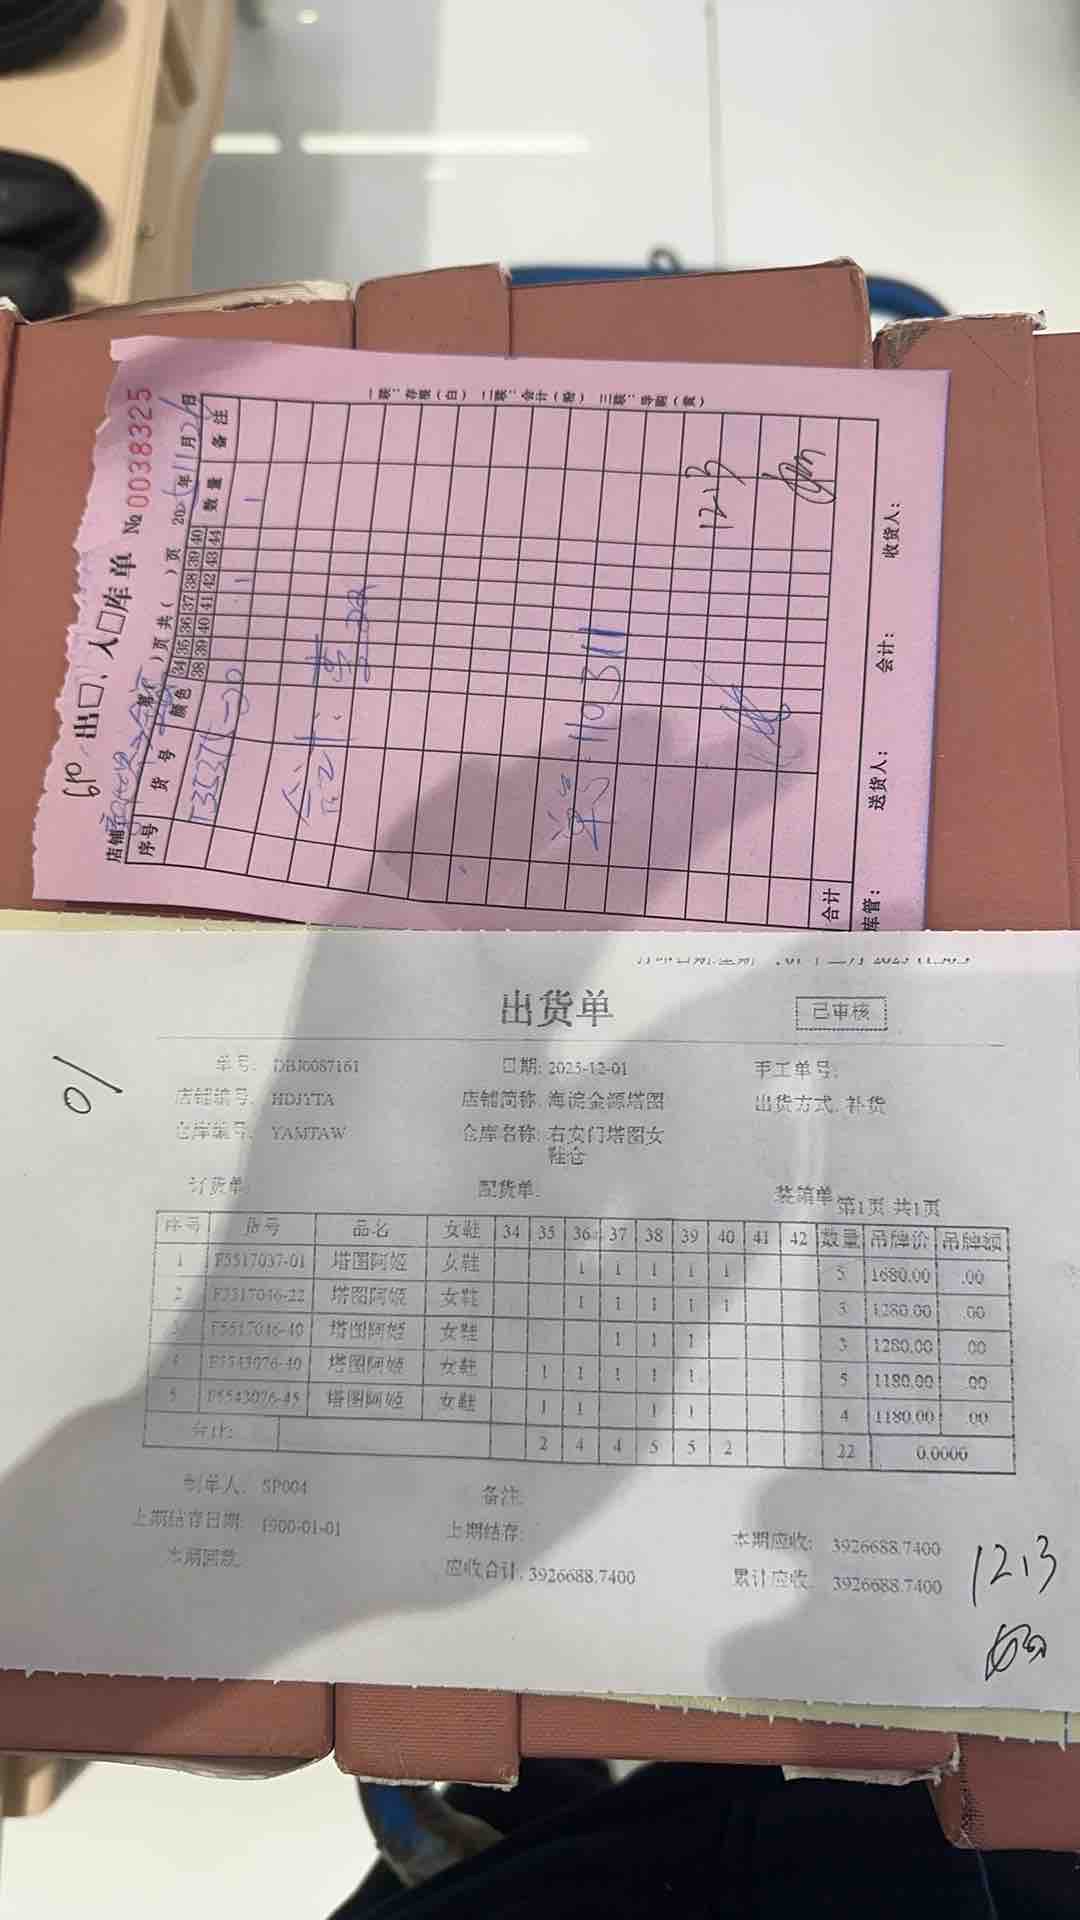 一联：存根（白） 二联：会计（粉） 三联：导购（黄）
出口、入口库单 № 0038325
店铺
页 共（ ）页 20 年11月 日
序号 货号 颜色 34 35 36 37 38 39 40 数量 备注
38 39 40 41 42 43 44
1 1
合计：壹双
单号：110311
12.13
合计
库管： 送货人： 会计： 收货人：
出货单
已审核
01
单号: DBJ0087161 日期: 2025-12-01 手工单号:
店铺编号: HDJYTA 店铺简称: 海淀金源塔图 出货方式: 补货
仓库编号: YAMTAW 仓库名称: 右安门塔图女
鞋仓
订货单: 配货单: 装箱单 第1页 共1页
序号 货号 品名 女鞋 34 35 36 37 38 39 40 41 42 数量 吊牌价 吊牌额
1 F5517037-01 塔图阿姬 女鞋 1 1 1 1 1 5 1680.00 .00
2 F5517046-22 塔图阿姬 女鞋 1 1 1 1 1 5 1280.00 .00
3 F5517046-40 塔图阿姬 女鞋 1 1 1 3 1280.00 .00
4 F5543076-40 塔图阿姬 女鞋 1 1 1 1 1 5 1180.00 .00
5 F5543076-45 塔图阿姬 女鞋 1 1 1 1 4 1180.00 .00
合计: 2 4 4 5 5 2 22 0.0000
制单人: SP004 备注:
上期结存日期: 1900-01-01 上期结存: 本期应收: 3926688.7400
本期回款: 应收合计: 3926688.7400 累计应收: 3926688.7400
12.13